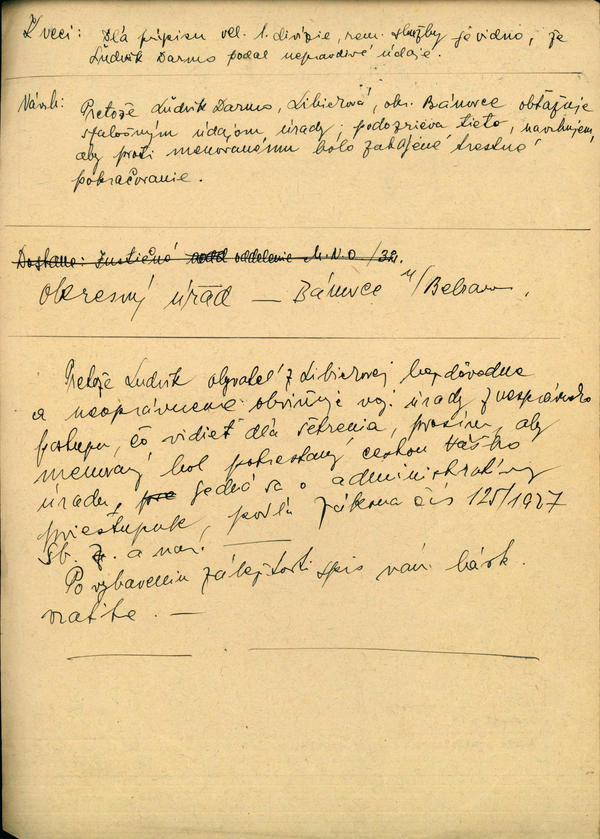 K veci: Dľa prípisu vel. 1. divízie, rem. služby je vidno, že
Ľudvik Darmo podal nepravdivé údaje.
Návrh: Pretože Ľudvik Darmo, Libichová, okr. Bánovce obťažuje
falošným údajom úrady, podozrieva tieto, navrhujem,
aby proti menovanému bolo zahájené trestné
pokračovanie.
Dostane: Justičné oddelenie M.N.O./32.
Okresný úrad — Bánovce n/Bebravou.
Pretože Ludvik obyvateľ z Libichovej bezdôvodne
a neoprávnene obviňuje voj. úrady z nesprávneho
postupu, čo vidieť dľa šetrenia, prosím, aby
menovaný bol potrestaný cestou Vášho
úradu, jedná sa o administratívny
priestupok, podľa zákona čís 125/1927
Sb. z. a nar.
Po vybavení záležitosti spis nám lásk.
vráťte. —